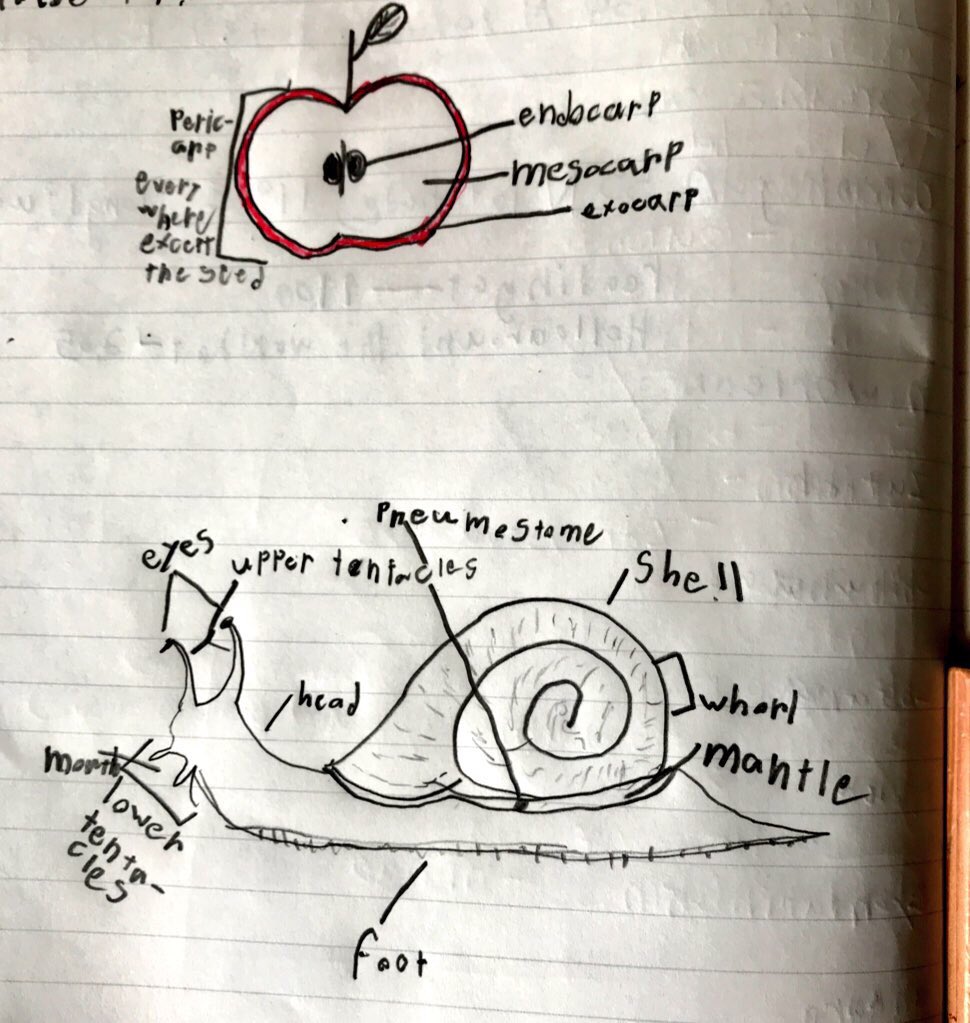 endocarp
Peric-
arp
mesocarp
every
where
excert
the seed
exocarp
Pneumostome
eyes
upper tentacles
Shell
head
whorl
mantle
lower
tenta-
cles
foot